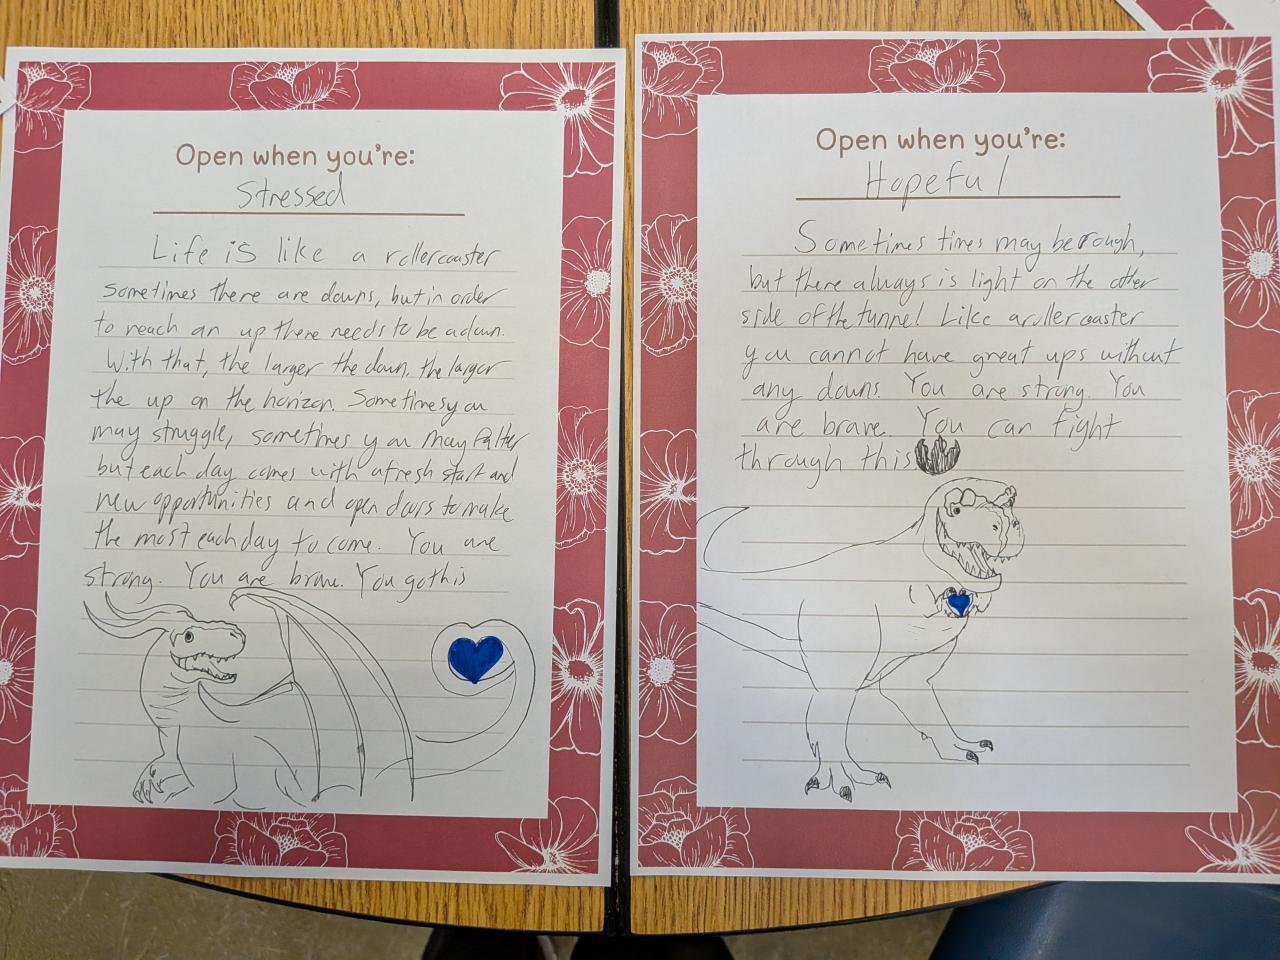 Open when you're:
Stressed
Life is like a rollercoaster
sometimes there are downs, but in order
to reach an up there needs to be a down.
With that, the larger the down, the larger
the up on the horizon. Sometimes you
may struggle, sometimes you may falter
but each day comes with a fresh start and
new opportunities and open doors to make
the most each day to come. You are
strong. You are brave. You got this
Open when you're:
Hopeful
Sometimes times may be rough,
but there always is light on the other
side of the tunnel. Like a rollercoaster
you cannot have great ups without
any downs. You are strong. You
are brave. You can fight
through this